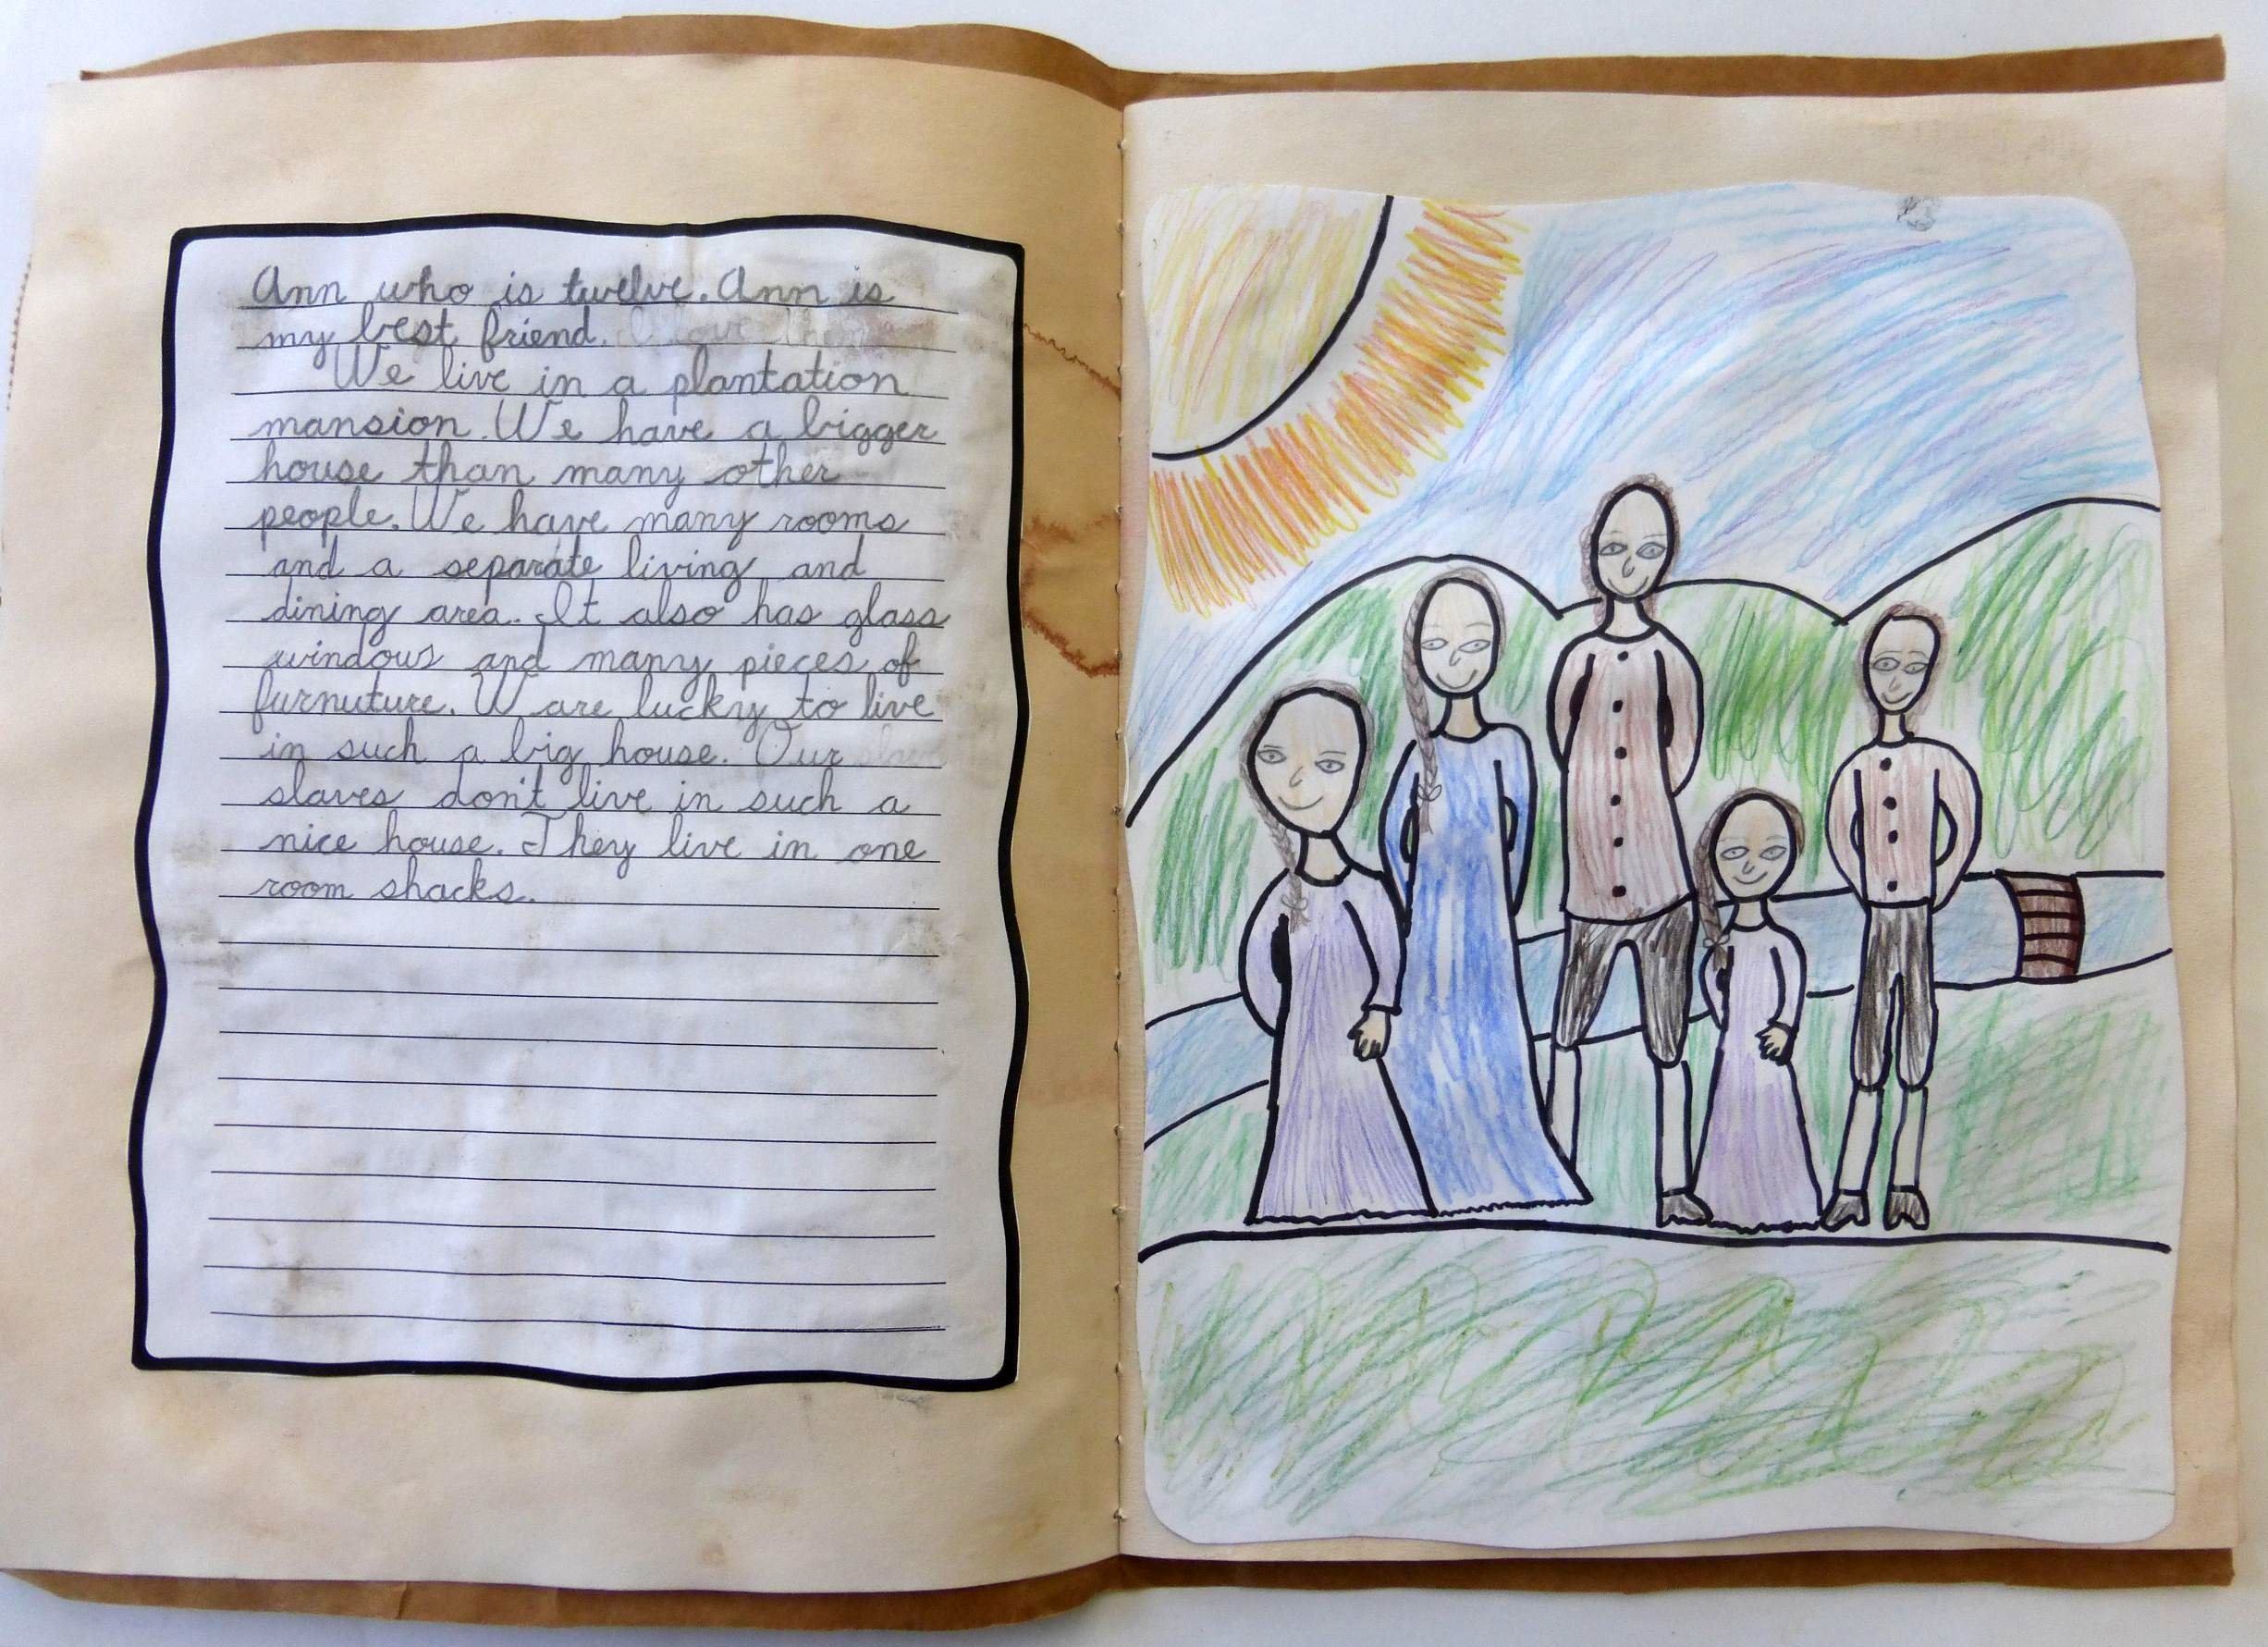 Ann who is twelve. Ann is
my best friend.
We live in a plantation
mansion. We have a bigger
house than many other
people. We have many rooms
and a separate living and
dining area. It also has glass
windows and many pieces of
furnuture. W are lucky to live
in such a big house. Our
slaves don't live in such a
nice house. They live in one
room shacks.